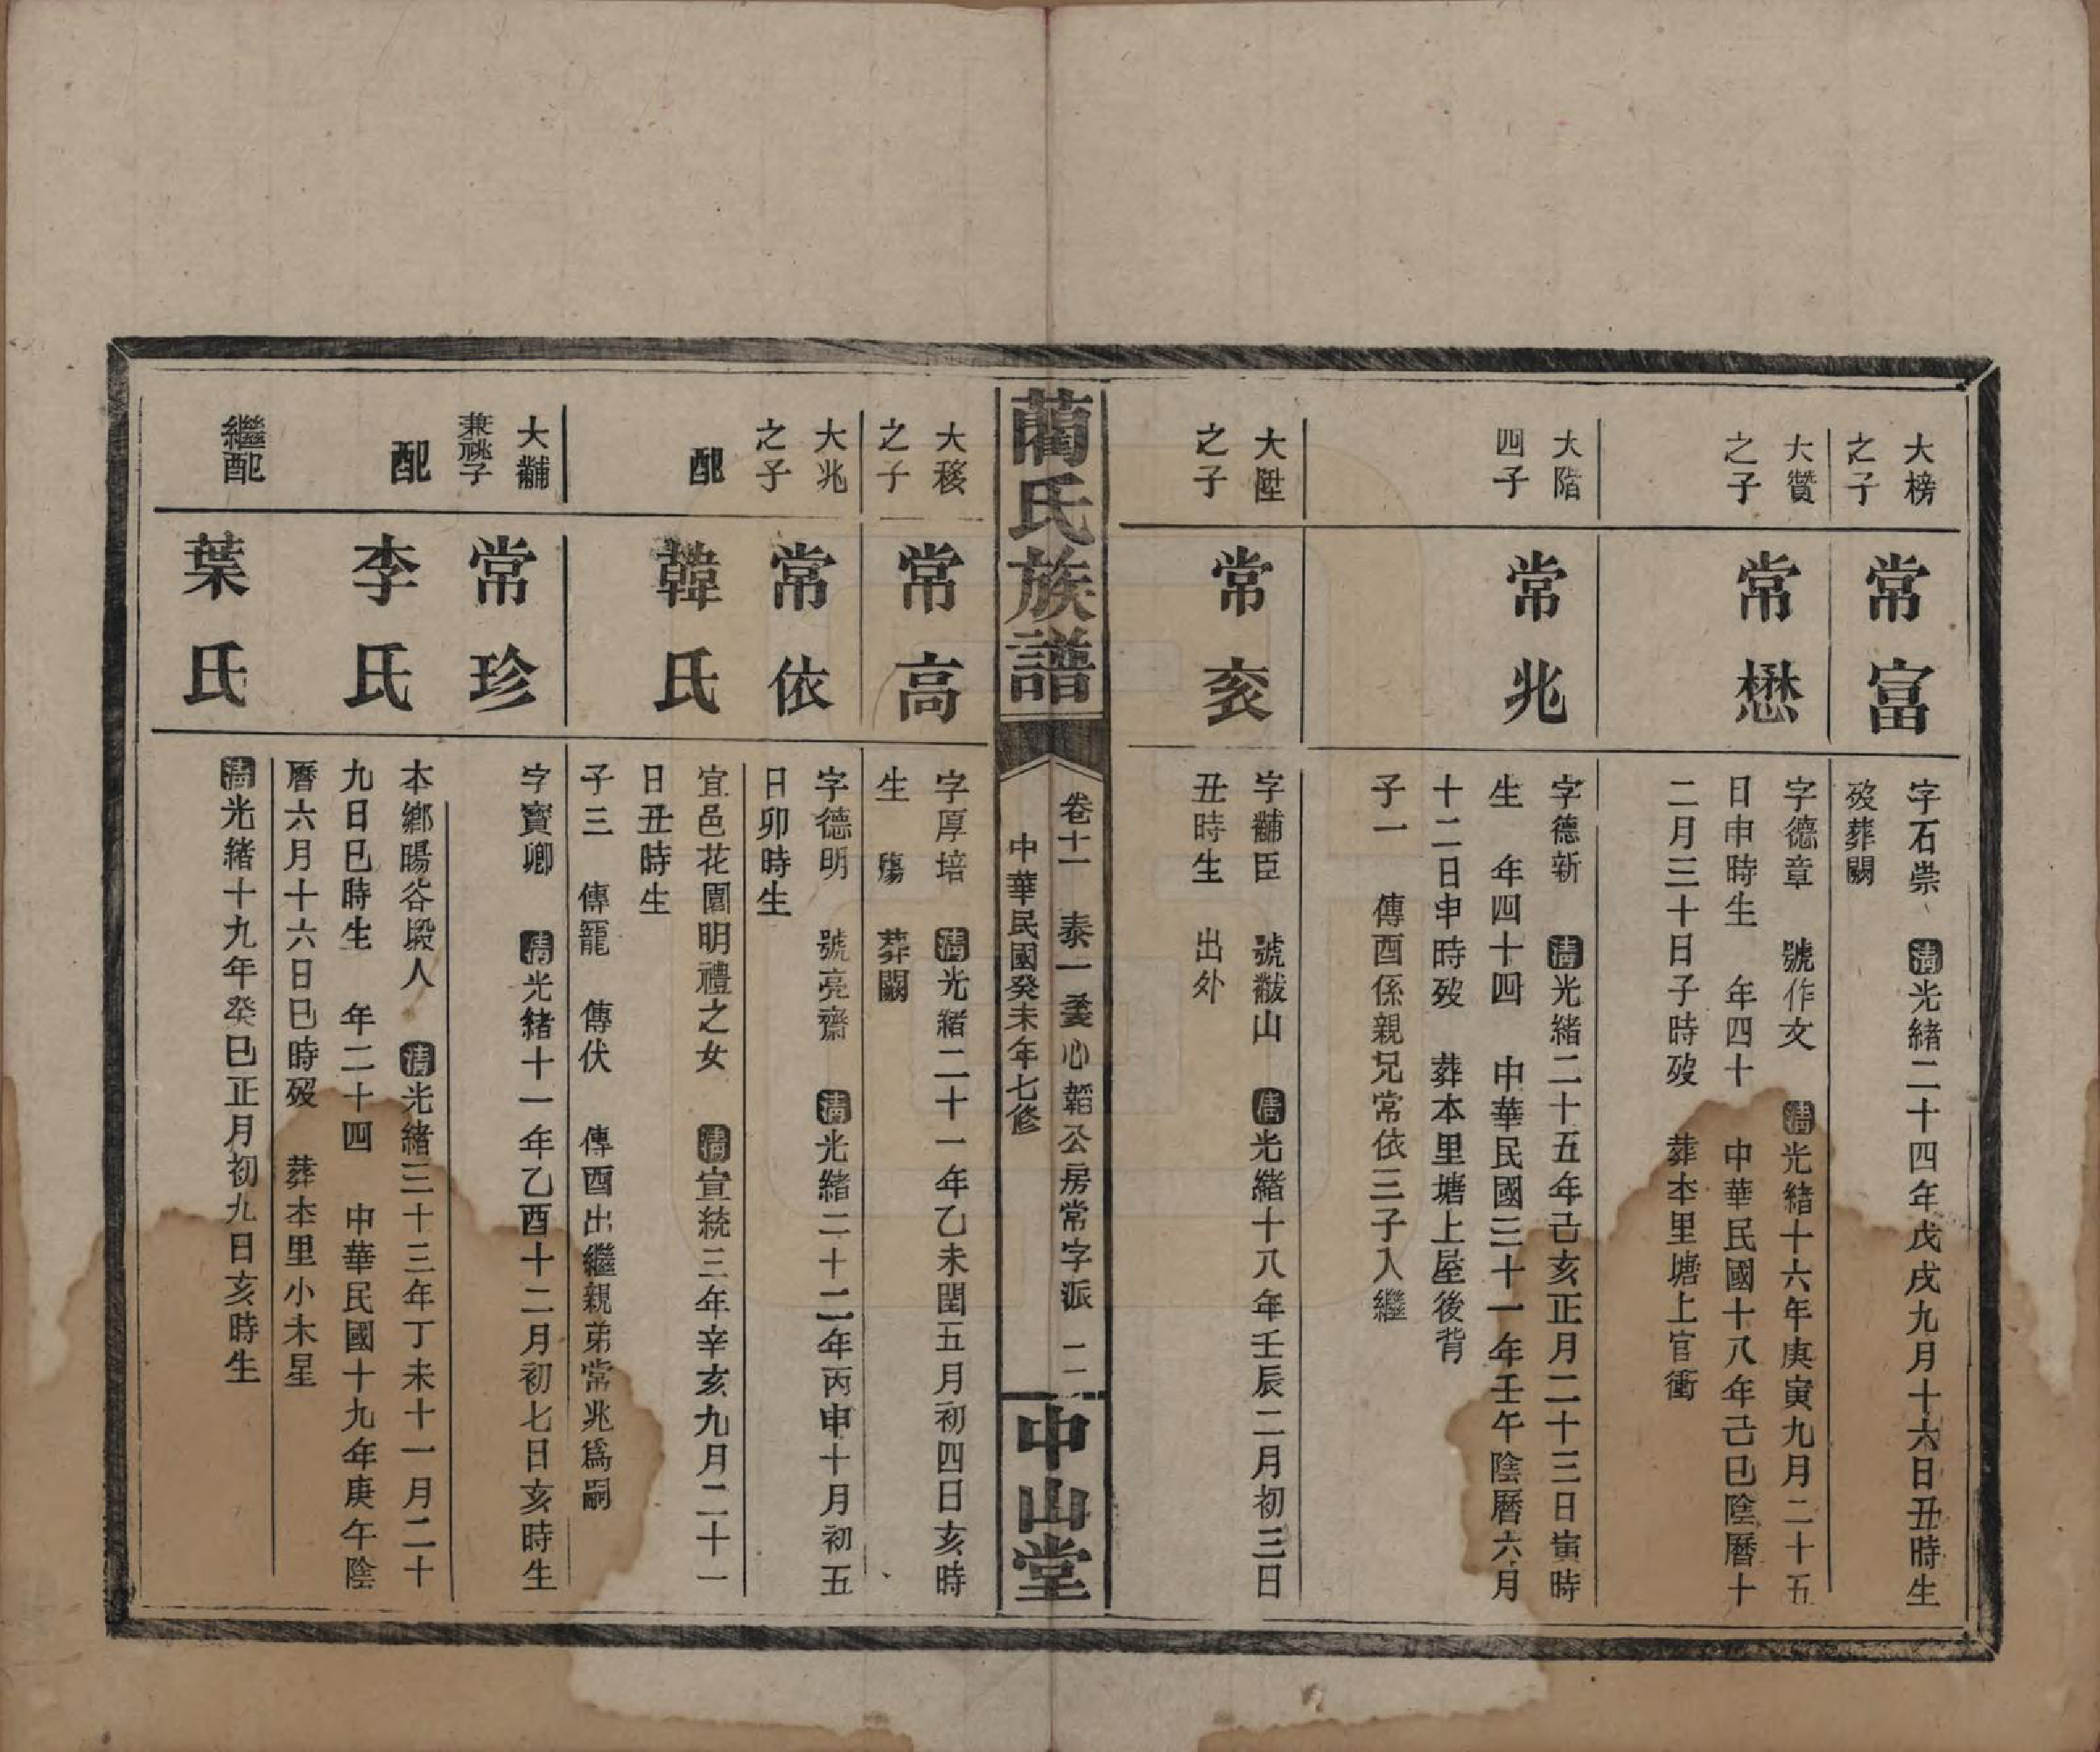 大榜
之子
常富
字石崇 清光緒二十四年戊戌九月十六日丑時生
歿葬闕
大贊
之子
常懋
字德章 號作文 清光緒十六年庚寅九月二十五
日申時生 年四十 中華民國十八年己巳陰曆十
二月三十日子時歿 葬本里塘上官衝
大階
四子
常兆
字德新 清光緒二十五年己亥正月二十三日寅時
生 年四十四 中華民國三十一年壬午陰曆六月
十二日申時歿 葬本里塘上屋後背
子一 傳酉係親兄常依三子入繼
大陞
之子
常袞
字黼臣 號黻山 清光緒十八年壬辰二月初三日
丑時生 出外
藺氏族譜
卷十一 泰一 心韜公房常字派 二
中華民國癸未年七修
中山堂
大移
之子
常高
字厚培 清光緒二十一年乙未閏五月初四日亥時
生 殤 葬闕
大兆
之子
常依
字德明 號亮齋 清光緒二十二年丙申十月初五
日卯時生
配
韓氏
宜邑花園明禮之女 清宣統三年辛亥九月二十一
日丑時生
子三 傳寵 傳伏 傳酉出繼親弟常兆爲嗣
大黼
兼祧子
常珍
字寶卿 清光緒十一年乙酉十二月初七日亥時生
配
李氏
本鄉暘谷塅人 清光緒三十三年丁未十一月二十
九日巳時生 年二十四 中華民國十九年庚午陰
曆六月十六日巳時歿 葬本里小木星
繼配
葉氏
清光緒十九年癸巳正月初九日亥時生